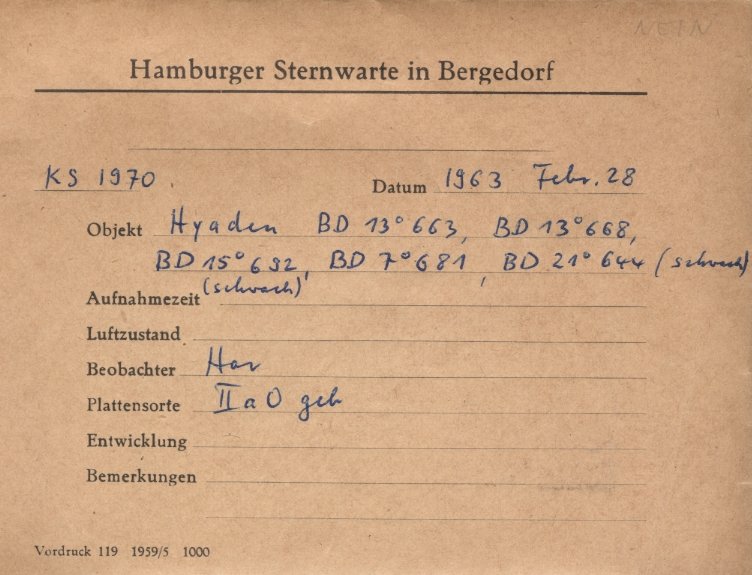 NEIN
Hamburger Sternwarte in Bergedorf
KS 1970. Datum 1963 Febr. 28
Objekt Hyaden BD 13° 663, BD 13° 668,
BD 15° 632, BD 7° 681, BD 21° 644 (schwach)
(schwach)
Aufnahmezeit
Luftzustand
Beobachter Har
Plattensorte II a O geb
Entwicklung
Bemerkungen
Vordruck 119 1959/5 1000